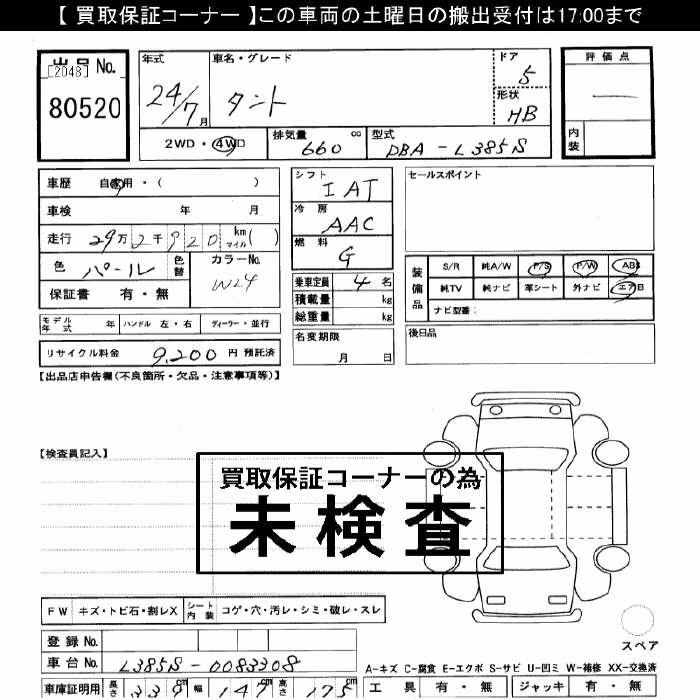 【 買取保証コーナー 】この車両の土曜日の搬出受付は17:00まで
出品 No.
[2048]
80520
年式
24/7月
車名・グレード
タント
ドア
5
形状
HB
2WD・4WD
排気量 660 cc
型式 DBA - L385S
評価点
—
内装
車歴 自家用・( )
車検 年 月
走行 29万2千920 km マイル( )
色 パール 色替
カラーNo. W24
保証書 有・無
モデル年式 年 ハンドル 左・右 ディーラー・並行
リサイクル料金 9,200 円 預託済
シフト
IAT
冷房
AAC
燃料
G
乗車定員 4 名
積載量 kg
総重量 kg
名変期限
月 日
セールスポイント
装備品
S/R 純A/W P/S P/W ABS
純TV 純ナビ 革シート 外ナビ エアB
ナビ型番:
後日品
【出品店申告欄(不良箇所・欠品・注意事項等)】
【検査員記入】
買取保証コーナーの為
未検査
FW キズ・トビ石・割レX シート内装 コゲ・穴・汚レ・シミ・破レ・スレ
登録 No.
車台 No. L385S-0083308
車庫証明用 長さ 339 cm 幅 147 cm 高さ 175 cm
スペア
A-キズ C-腐食 E-エクボ S-サビ U-凹ミ W-補修 XX-交換済
工具 有・無 ジャッキ 有・無